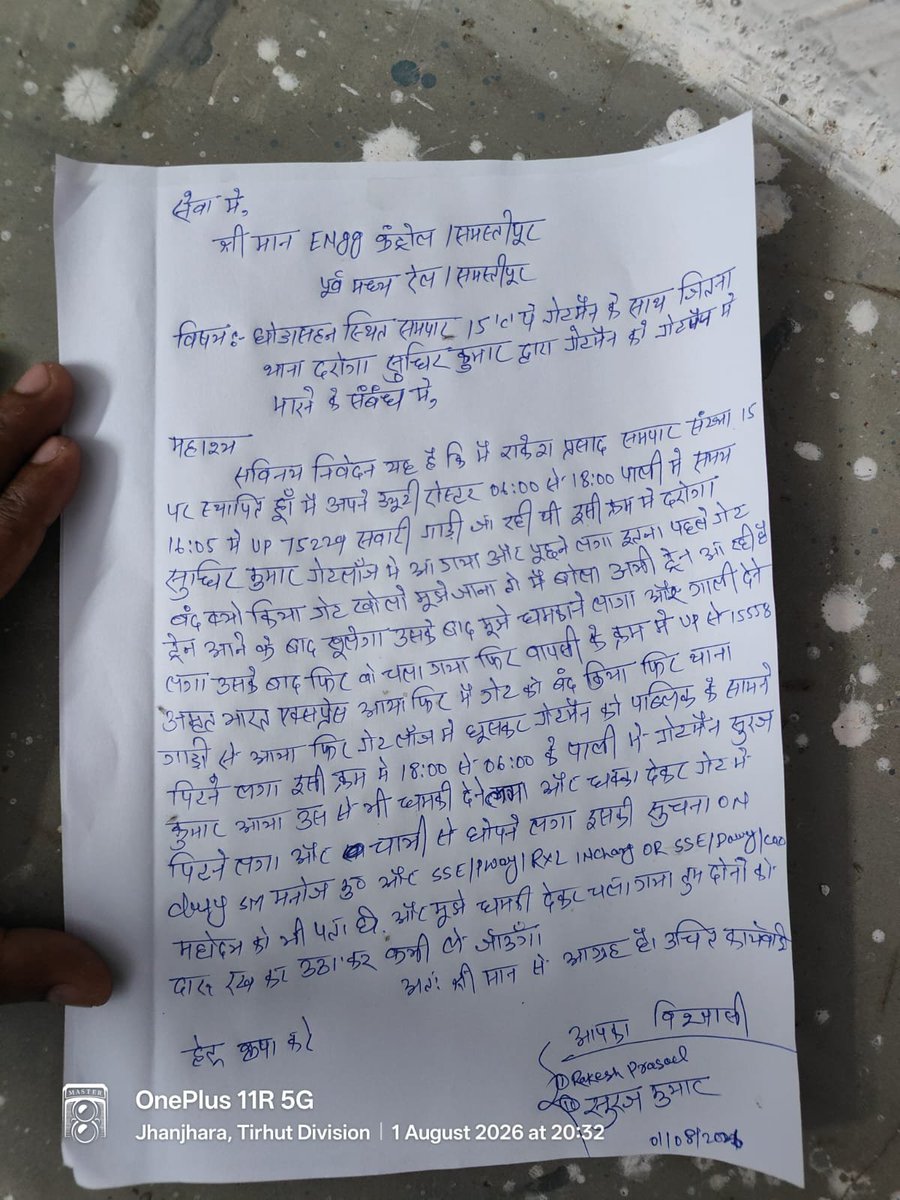 सेवा मे,
श्री मान ENgg कंट्रोल / समस्तीपुर
पूर्व मध्य रेल / समस्तीपुर
विषय:- घोडासहन स्थित समपार 15 'c' पे गेटमैन के साथ जितना
थाना दरोगा सुधिर कुमार द्वारा गेटमैन को
मारने के संबंध मे,
महाशय
सविनय निवेदन यह है कि मै राकेश प्रसाद समपार संख्या 15
पर स्थापित हूँ मै अपने ड्यूटी रोस्टर 06:00 से 18:00 पाली मे समय
16:05 मे UP 75229 सवारी गाड़ी जा रही थी इसी क्रम मे दरोगा
सुधिर कुमार गेटलॉज मे आ गया और पूछने लगा इतना पहले गेट
बंद क्यो किया गेट खोलो मुझे जाना है मै बोला अभी ट्रेन आ रही है
ट्रेन आने के बाद खूलेगा उसके बाद मूझे धमकाने लगा और गाली देने
लगा उसके बाद फिर वो चला गया फिर वापसी के क्रम मे UP से 15558
अमृत भारत एक्सप्रेस आया फिर मै गेट को बंद किया फिर थाना
गाड़ी से आया फिर गेट लॉज मे घूसकर गेटमैन को पब्लिक के सामने
पिटने लगा इसी क्रम मे 18:00 से 06:00 के पाली मे गेटमैन सुरज
कुमार आया उस से भी धमकी देने लगा और धक्का देकर गेट मे
पिटने लगा और चाभी से घोपने लगा इसकी सुचना ON
duty SM मनोज कु० और SSE/Pway/RXL INcharg OR SSE/Pway/
महोदय को भी पता है. और मूझे धमकी देकर चला गया तुम दोनो को
दारू रख कर उठाकर कभी ले जाउँगा
अतः श्री मान से आग्रह है। उचित कार्यवाही
हेतू कृपा करे
आपका विश्वासी
① Rakesh Prasad
सुरज कुमार
01/08/2026
MASTER
OnePlus 11R 5G
Jhanjhara, Tirhut Division | 1 August 2026 at 20:32